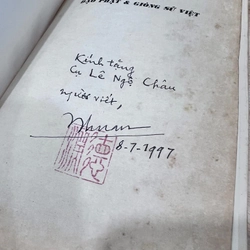 ĐẠO PHẬT & GIÒNG SỬ VIỆT
Kính tặng
Cụ Lê Ngọc Châu
người viết,
8-7-1997